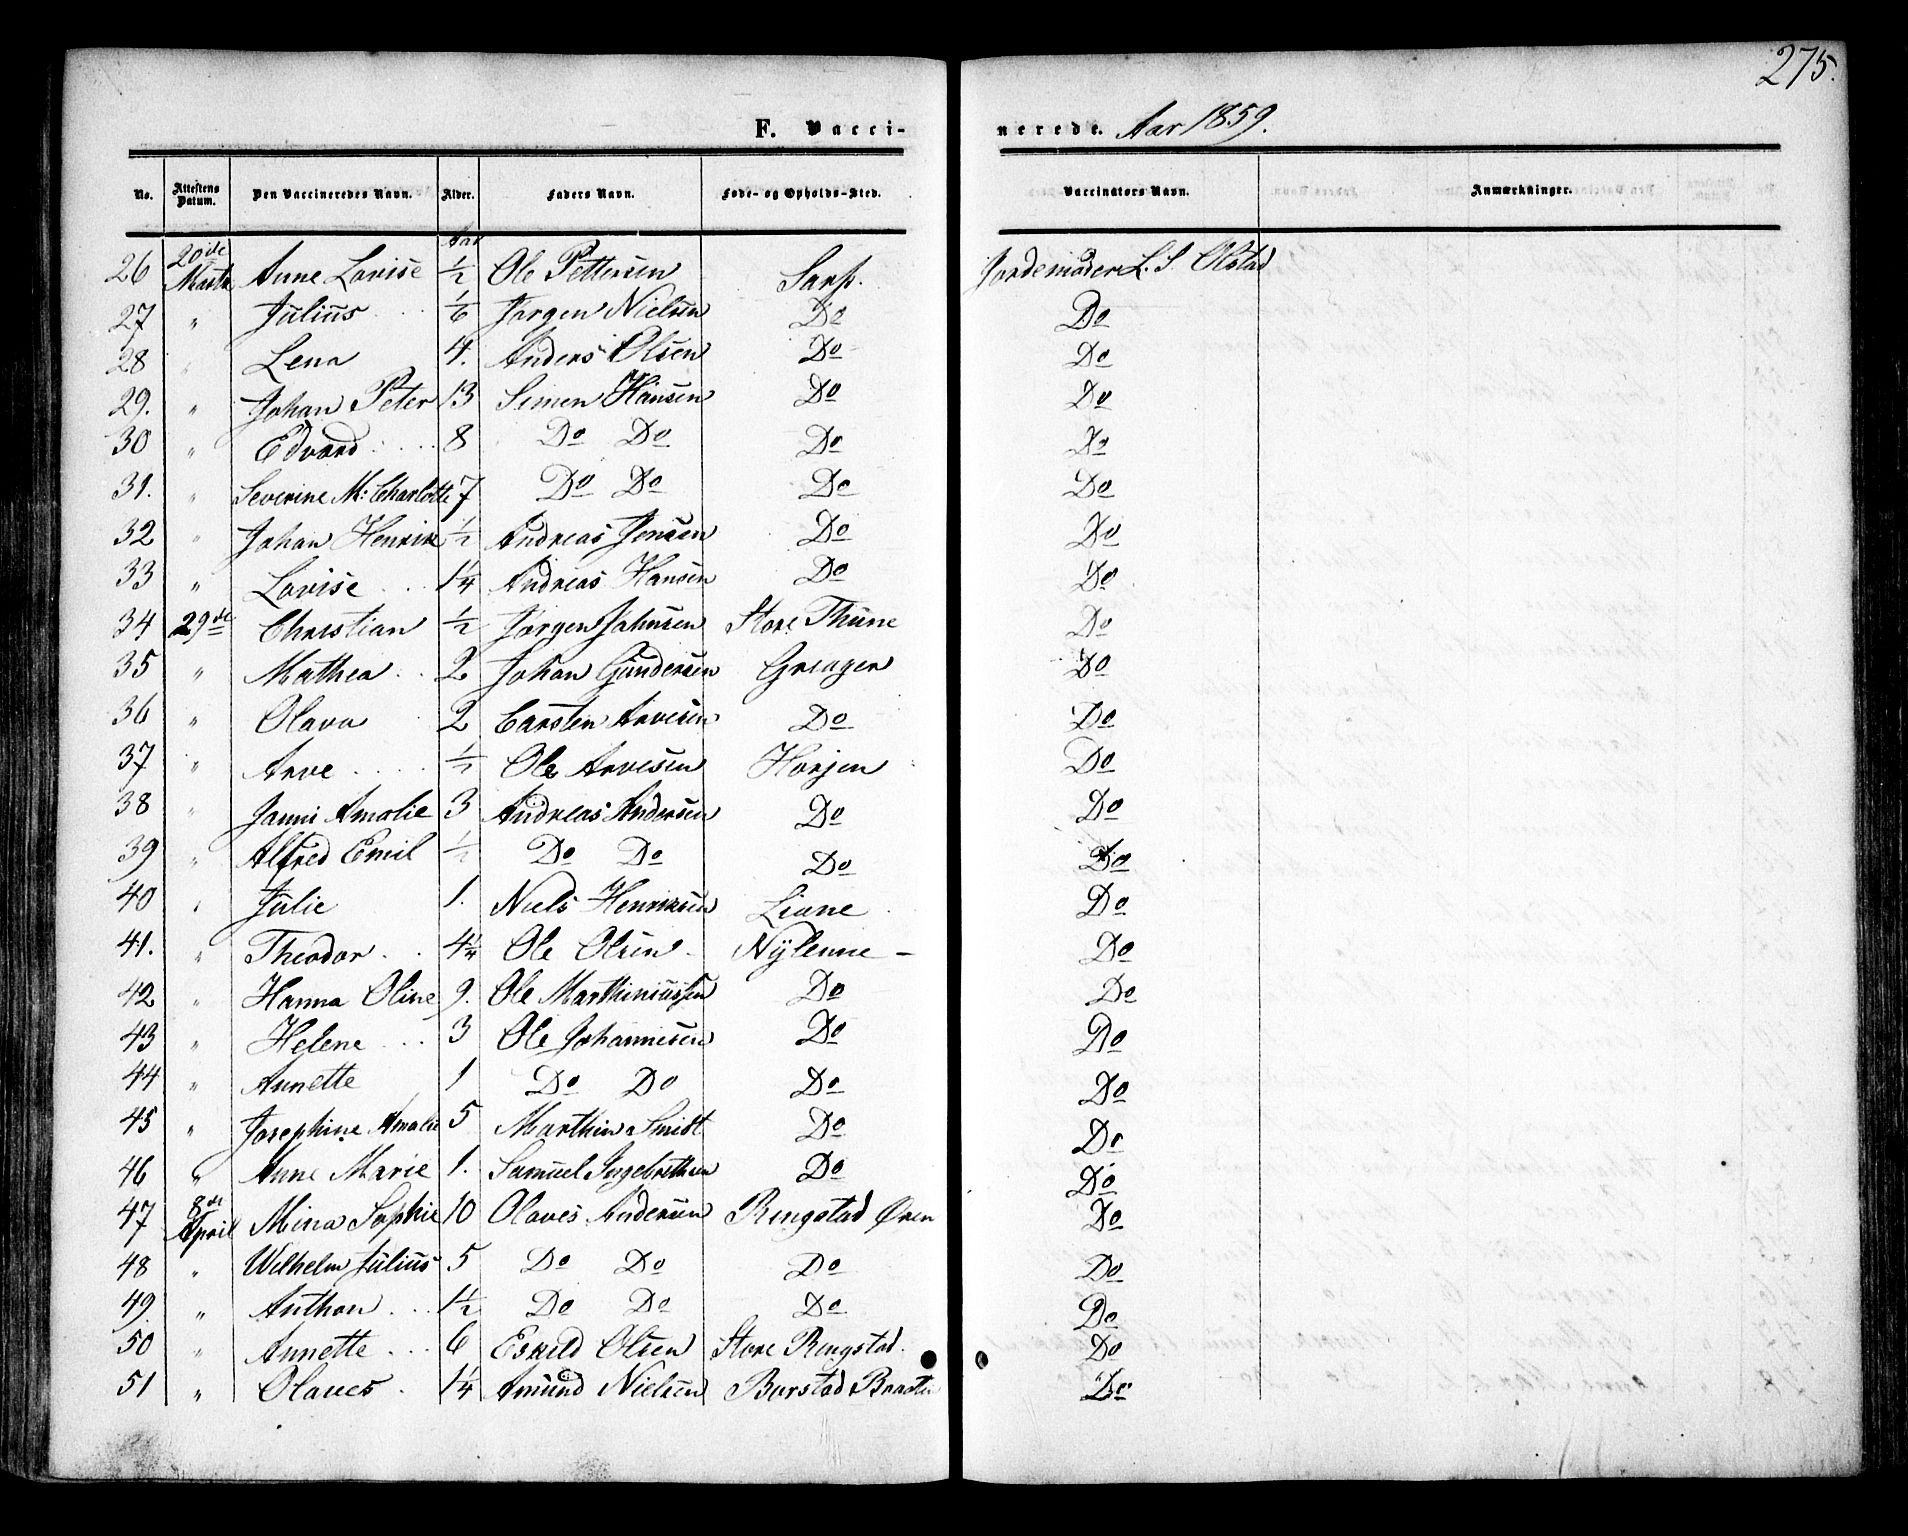 275.
F. Vaccinerede. Aar 1859.
No. Attestens Datum. Den Vaccineredes Navn. Alder. Faders Navn. Føde- og Opholds-Sted. Vaccinators Navn. Anmærkninger.
Aar
26 20de Marts Anne Lovise 1/2 Ole Pettersen Sarp. Jordemoder L. S. Olstad
27 " Julius 1/6 Jørgen Nielsen Do Do
28 " Lena 4. Anders Olsen Do Do
29. " Johan Peter 13 Simen Hansen Do Do
30 " Edvard 8 Do Do Do Do
31. " Severine M: Charlotte 7 Do Do Do Do
32 " Johan Henrik 1/2 Andreas Jensen Do Do
33 " Lovise 1 1/4 Andreas Hansen Do Do
34 29de Christian 1/2 Jørgen Johnsen Store Thune Do
35 " Mathea 2 Johan Gundersen Do
36 " Olava 2 Carsten Arvesen Do Do
37 " Arve 1/2 Ole Arvesen Horjen Do
38 " Janni Amalie 3 Andreas Andersen Do Do
39 " Alfred Emil 1/2 Do Do Do Do
40 " Julie 1. Niels Henriksen Liane Do
41. " Theodor 4 1/4 Ole Olsen Nylenne Do
42 " Hanna Oline 9. Ole Marthiniussen Do Do
43 " Helene 3 Ole Johannesen Do Do
44 " Annette 1 Do Do Do Do
45 " Josephine Amalie 5 Marthin Smidt Do Do
46 " Anne Marie 1. Samuel Ingebrethsen Do Do
47 8de April Mina Sophie 10 Olaves Andersen Ringstad Øren Do
48 " Wilhelm Julius 5 Do Do Do Do
49. " Anthon 1 1/2 Do Do Do Do
50 " Annette 6 Eskild Olsen Store Ringstad. Do
51 " Olaves 1 1/4 Amund Nielsen Do